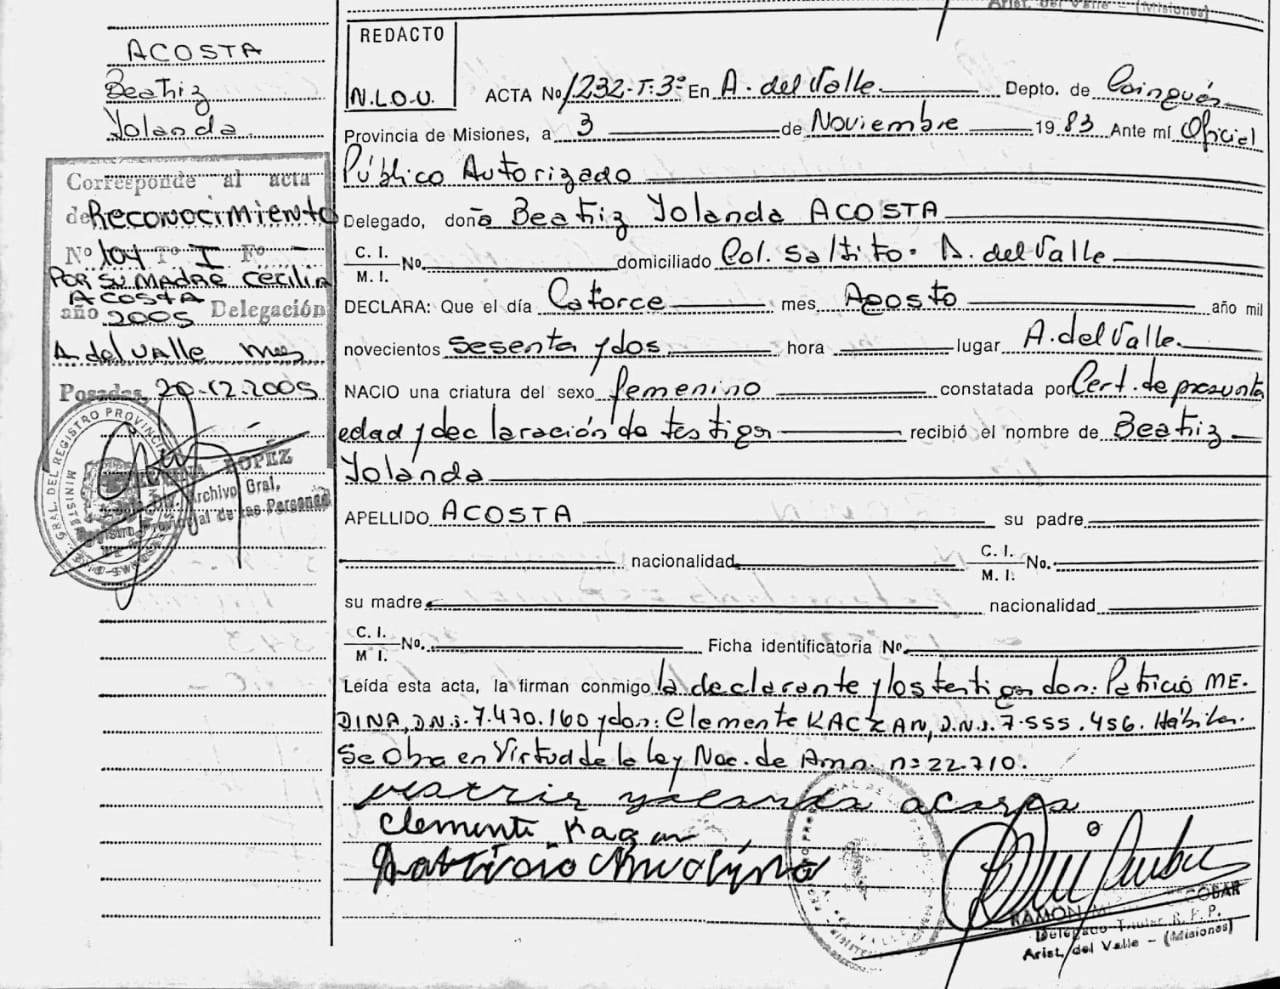 Arist. del Valle - (Misiones)
ACOSTA
Beatriz
Yolanda
Corresponde al acta
de Reconocimiento
Nº 104 Tº I Fº -
POR SU MADRE CECILIA
ACOSTA
año 2005 Delegación
A. del Valle Mnes
Posadas, 20-12-2005
LOPEZ
Archivo Gral.
Registro Provincial de las Personas
REDACTO
N.L.O.U.
ACTA Nº 1232-T.3º En A. del Valle Depto. de Cainguás
Provincia de Misiones, a 3 de Noviembre 1983 Ante mí Oficial
Público Autorizado
Delegado, doña Beatriz Yolanda ACOSTA
C. I.
M. I. No. domiciliado Col. Saltito - A. del Valle
DECLARA: Que el día Catorce mes Agosto año mil
novecientos sesenta y dos hora lugar A. del Valle.
NACIO una criatura del sexo femenino constatada por Cert. de presunta
edad y declaración de testigos recibió el nombre de Beatriz
Yolanda
APELLIDO ACOSTA su padre
nacionalidad C. I.
M. I. No.
su madre nacionalidad
C. I.
M I. No. Ficha identificatoria Nº
Leída esta acta, la firman conmigo la declarante y los testigos don: Patricio ME-
DINA, D.N.I. 7.470.160 y don: Clemente KACZAN, D.N.I. 7.555.456. Hábiles.
Se Obra en Virtud de la Ley Nac. de Amn. nº 22.710.
beatriz yolanda acosta
Clemente Kaczan
Patricio Medina
RAMON ESCOBAR
Delegado Titular R. P. P.
Arist. del Valle - (Misiones)